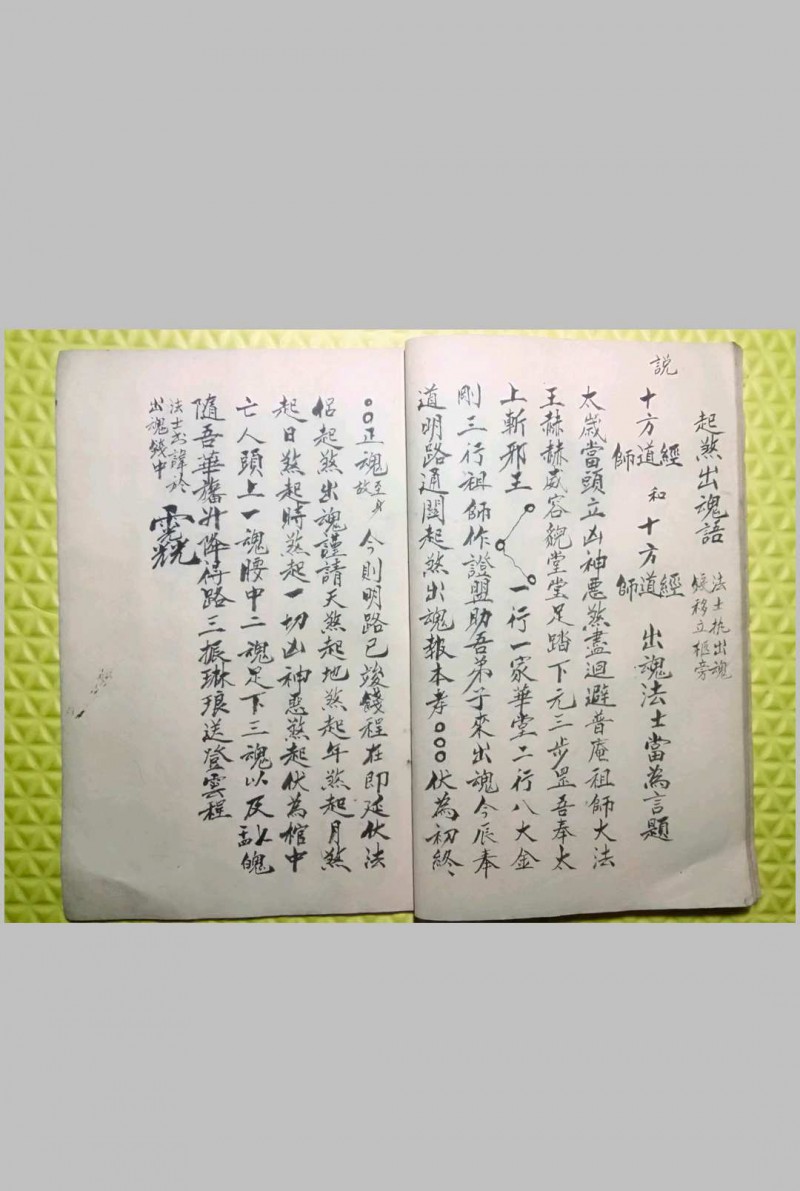 起煞出魂語
法士执出魂
錢移立柩旁
說
十方道經師 和 十方道經師 出魂法士當為言題
太歲當頭立凶神惡煞盡迴避普庵祖師大法
王赫赫威容貌堂堂足踏下元三步罡吾奉太
上斬邪王 一行一家華堂二行八大金
剛三行祖師作證盟助吾弟子來出魂今辰奉
道明路通関起煞出魂報本孝○○○伏為初終
○○正魂至身故 今則明路已竣餞程在即延伏法
侶起煞出魂謹請天煞起地煞起年煞起月煞
起日煞起時煞起一切凶神惡煞起伏為棺中
亡人頭上一魂腰中二魂足下三魂以及魄
隨吾華旛升降得路三振琳琅送登雲程
法士書諱於
出魂錢中